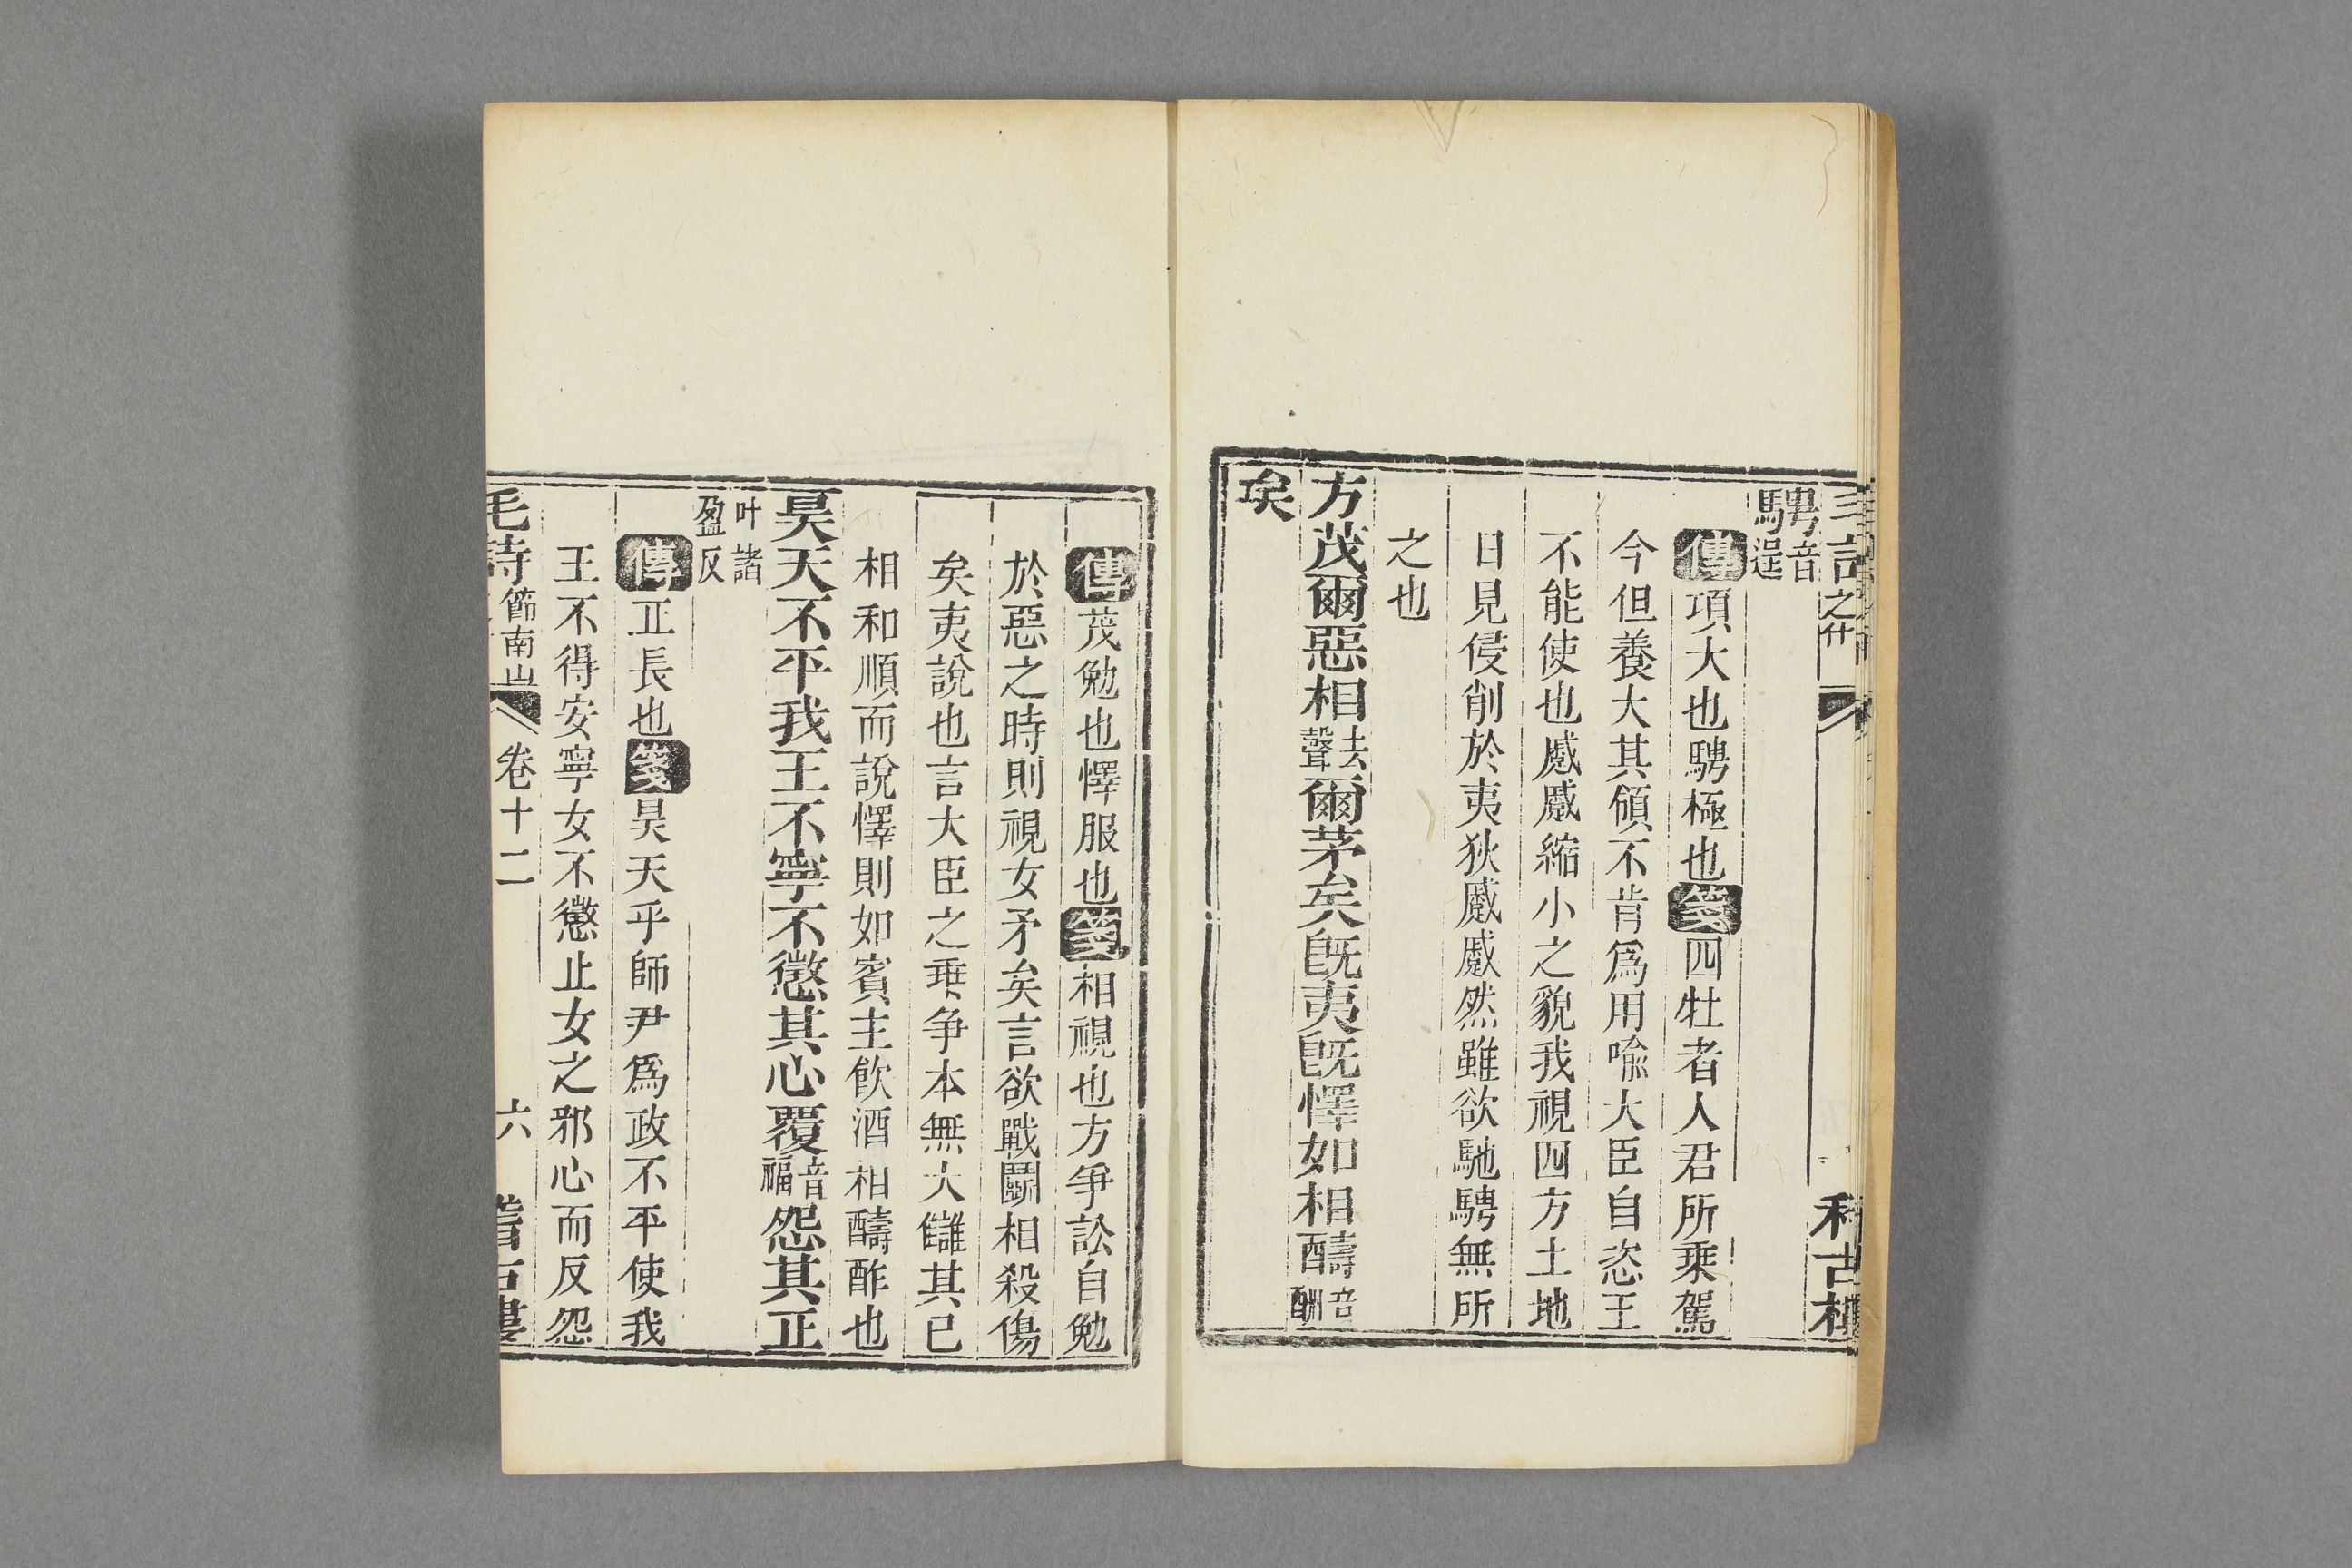 騁音逞
傳項大也騁極也箋四牡者人君所乘駕
今但養大其領不肯爲用喻大臣自恣王
不能使也蹙蹙縮小之貌我視四方土地
日見侵削於夷狄蹙蹙然雖欲馳騁無所
之也
方茂爾惡相去聲爾茅矣旣夷旣懌如相醻音酬
矣
傳茂勉也懌服也箋相視也方爭訟自勉
於惡之時則視女矛矣言欲戰鬭相殺傷
矣夷說也言大臣之乖争本無大讎其已
相和順而說懌則如賓主飮酒相醻酢也
昊天不平我王不寧不懲其心覆音福怨其正
叶諸盈反
傳正長也箋昊天乎師尹爲政不平使我
王不得安寧女不懲止女之邪心而反怨
毛詩節南山 卷十二 六 稽古樓